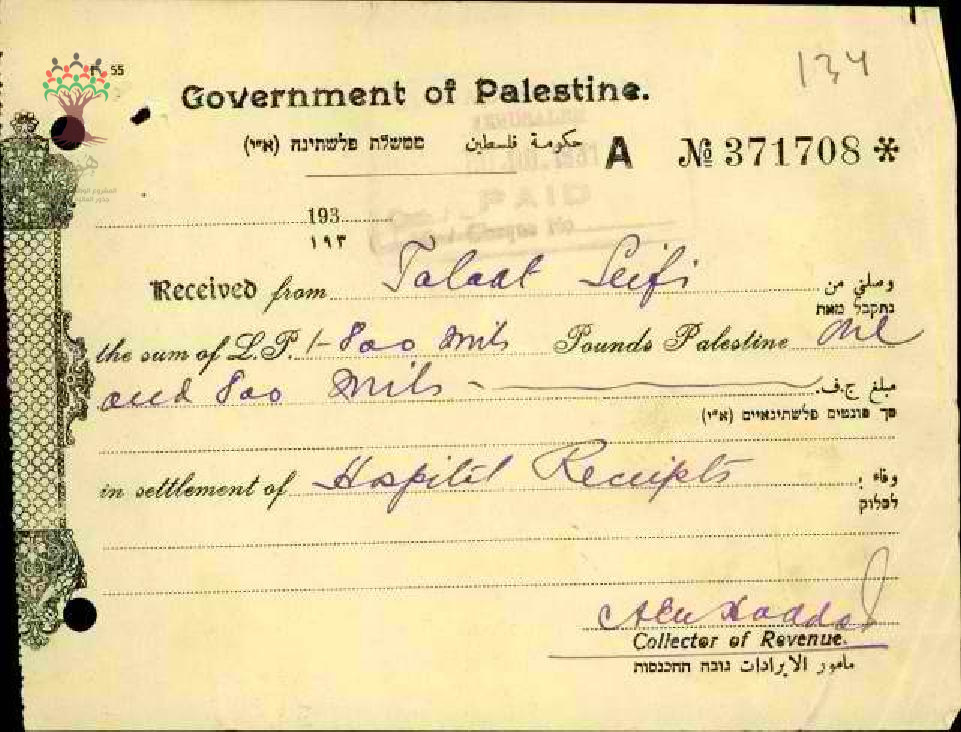 55
134
Government of Palestine.
ממשלת פלשתינה (א״י) حكومة فلسطين A № 371708 *
PAID
193
١٩٣
Received from Talaat Seifi وصلني من
נתקבל מאת
the sum of L.P. 1-800 mils Pounds Palestine one
and 800 mils مبلغ ج.ف.
סך פונטים פלשתינאיים (א״י)
in settlement of Hospital Receipts وفاء
לסלוק
Collector of Revenue.
مأمور الايرادات גובה ההכנסות